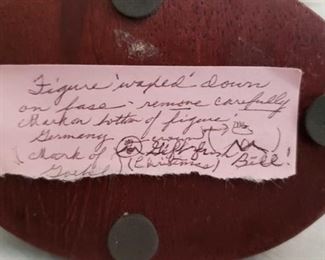 Figure 'waped' down
on base - remove carefully
Mark on bottom of figure
Germany crown
Mark of Gift from
Goebel (Christmas) Bill!